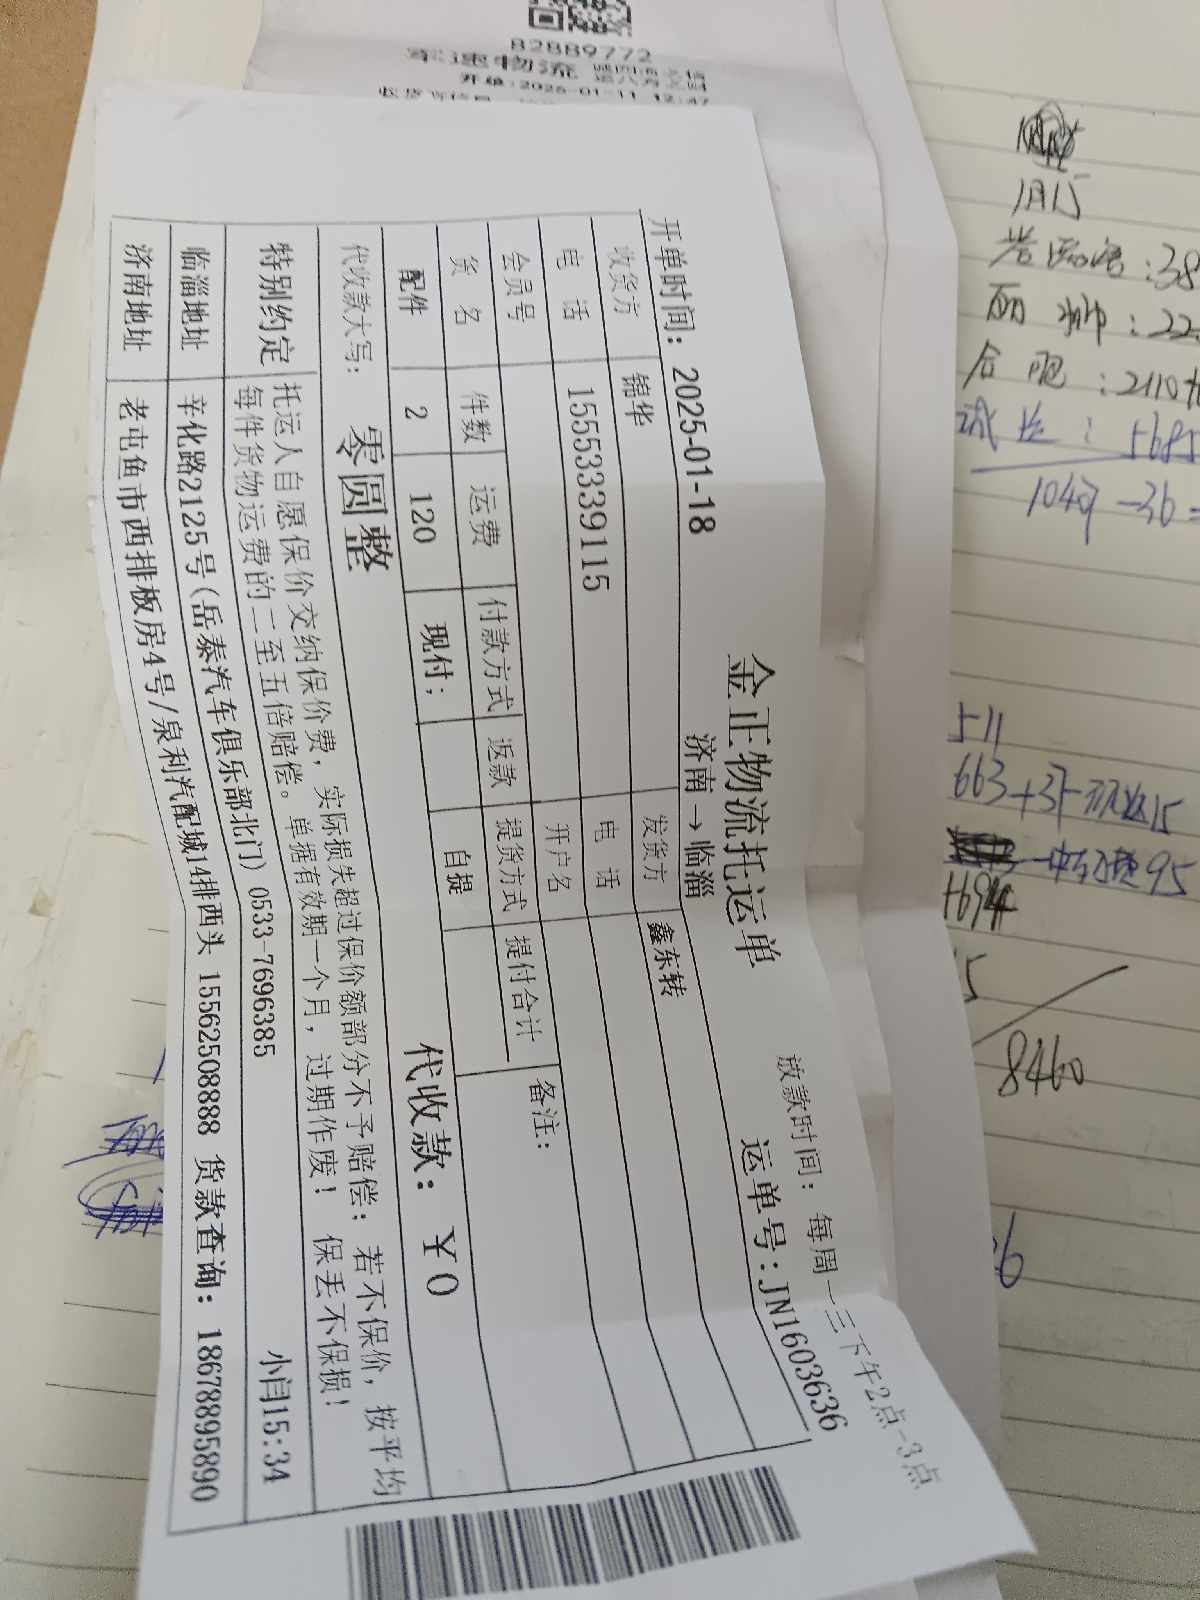 82889772
军速物流
开单:2026-01-11 12:47
金正物流托运单
放款时间: 每周一三下午2点-3点
开单时间: 2025-01-18
济南→临淄
运单号:JN1603636
收货方 锦华 发货方 鑫东转
电话 15553339115 电话
会员号 开户名 备注:
货名 件数 运费 付款方式 返款 提货方式 提付合计
配件 2 120 现付; 自提
代收款大写: 零圆整 代收款: ¥0
特别约定 托运人自愿保价交纳保价费,实际损失超过保价额部分不予赔偿;若不保价,按平均
每件货物运费的二至五倍赔偿。单据有效期一个月,过期作废! 保丢不保损!
临淄地址 辛化路2125号(岳泰汽车俱乐部北门) 0533-7696385 小闫15:34
济南地址 老屯鱼市西排板房4号/泉利汽配城14排西头 15562508888 货款查询: 18678895890
1月15
:38
:22
合肥:2110+
: 5685
-36=
511
95
8460